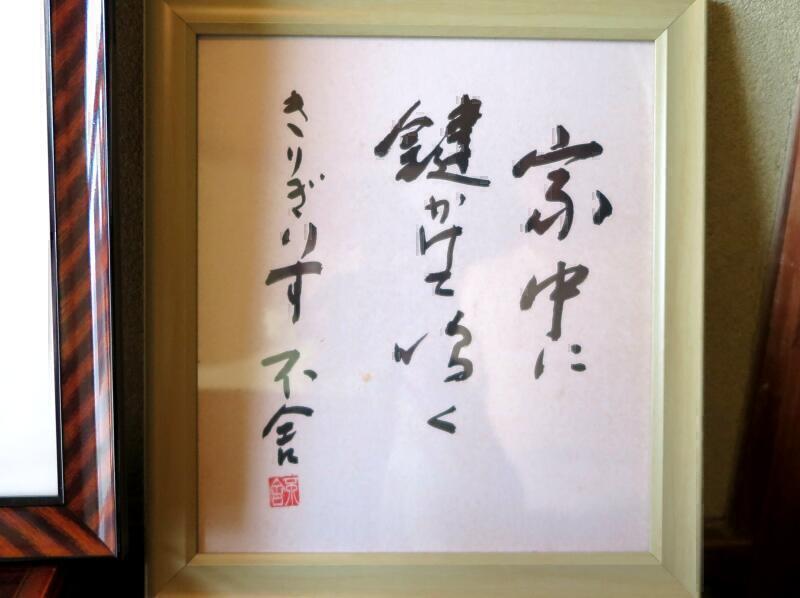 家中に
鍵かけて鳴く
きりぎりす 不舎